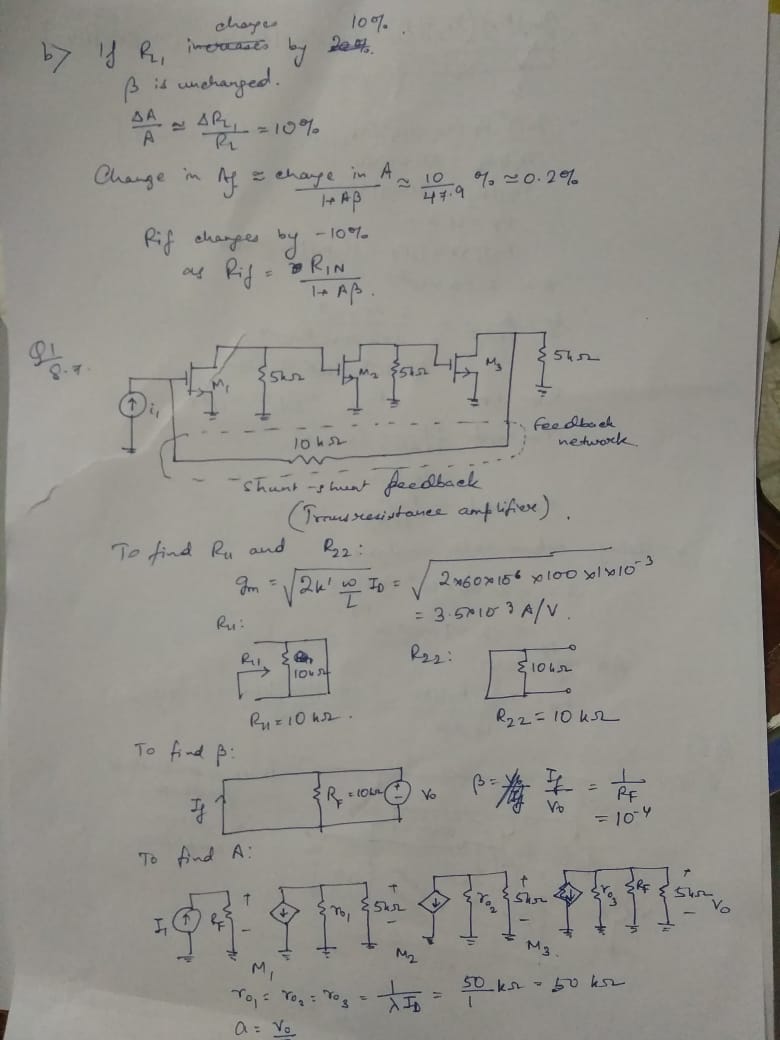 changes 10%.
b) If R_L1 increases by 20%.
β is unchanged.
ΔA/A ≈ ΔR_L1/R_L = 10%
Change in Af ≈ change in A / 1+Aβ ≈ 10/47.9 % ≈ 0.2%
Rif changes by -10%
as Rif = R_IN / 1+Aβ.
Q1
8.7.
M1 5kΩ M2 5kΩ M3 5kΩ
i1
10 kΩ
feedback
network
shunt-shunt feedback
(Transresistance amplifier).
To find R11 and R22:
gm = √(2k' W/L I_D) = √(2×60×10^6 ×100 ×1×10^-3)
= 3.5×10^-3 A/V.
R11: R22:
R11 10kΩ 10kΩ
R11 = 10 kΩ. R22 = 10 kΩ
To find β:
If R_F = 10kΩ Vo β = If/Vo = 1/R_F
= 10^-4
To find A:
I1 R_F ro1 5kΩ ro2 5kΩ ro3 R_F 5kΩ Vo
M1 M2 M3.
ro1 = ro2 = ro3 = 1/λI_D = 50/1 kΩ = 50 kΩ
a = Vo